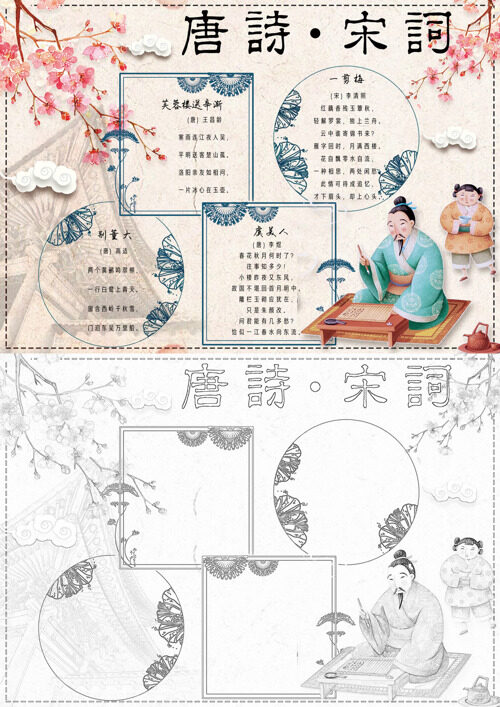 唐詩·宋詞
芙蓉楼送辛渐
(唐) 王昌龄
寒雨连江夜入吴，
平明送客楚山孤。
洛阳亲友如相问，
一片冰心在玉壶。
一剪梅
(宋) 李清照
红藕香残玉簟秋，
轻解罗裳，独上兰舟。
云中谁寄锦书来？
雁字回时，月满西楼。
花自飘零水自流，
一种相思，两处闲愁。
此情可待成追忆，
才下眉头，却上心头。
别董大
(唐) 高适
两个黄鹂鸣翠柳，
一行白鹭上青天。
窗含西岭千秋雪，
门泊东吴万里船。
虞美人
(唐) 李煜
春花秋月何时了？
往事知多少！
小楼昨夜又东风，
故国不堪回首月明中。
雕栏玉砌应犹在，
只是朱颜改。
问君能有几多愁？
恰似一江春水向东流。
唐詩·宋詞